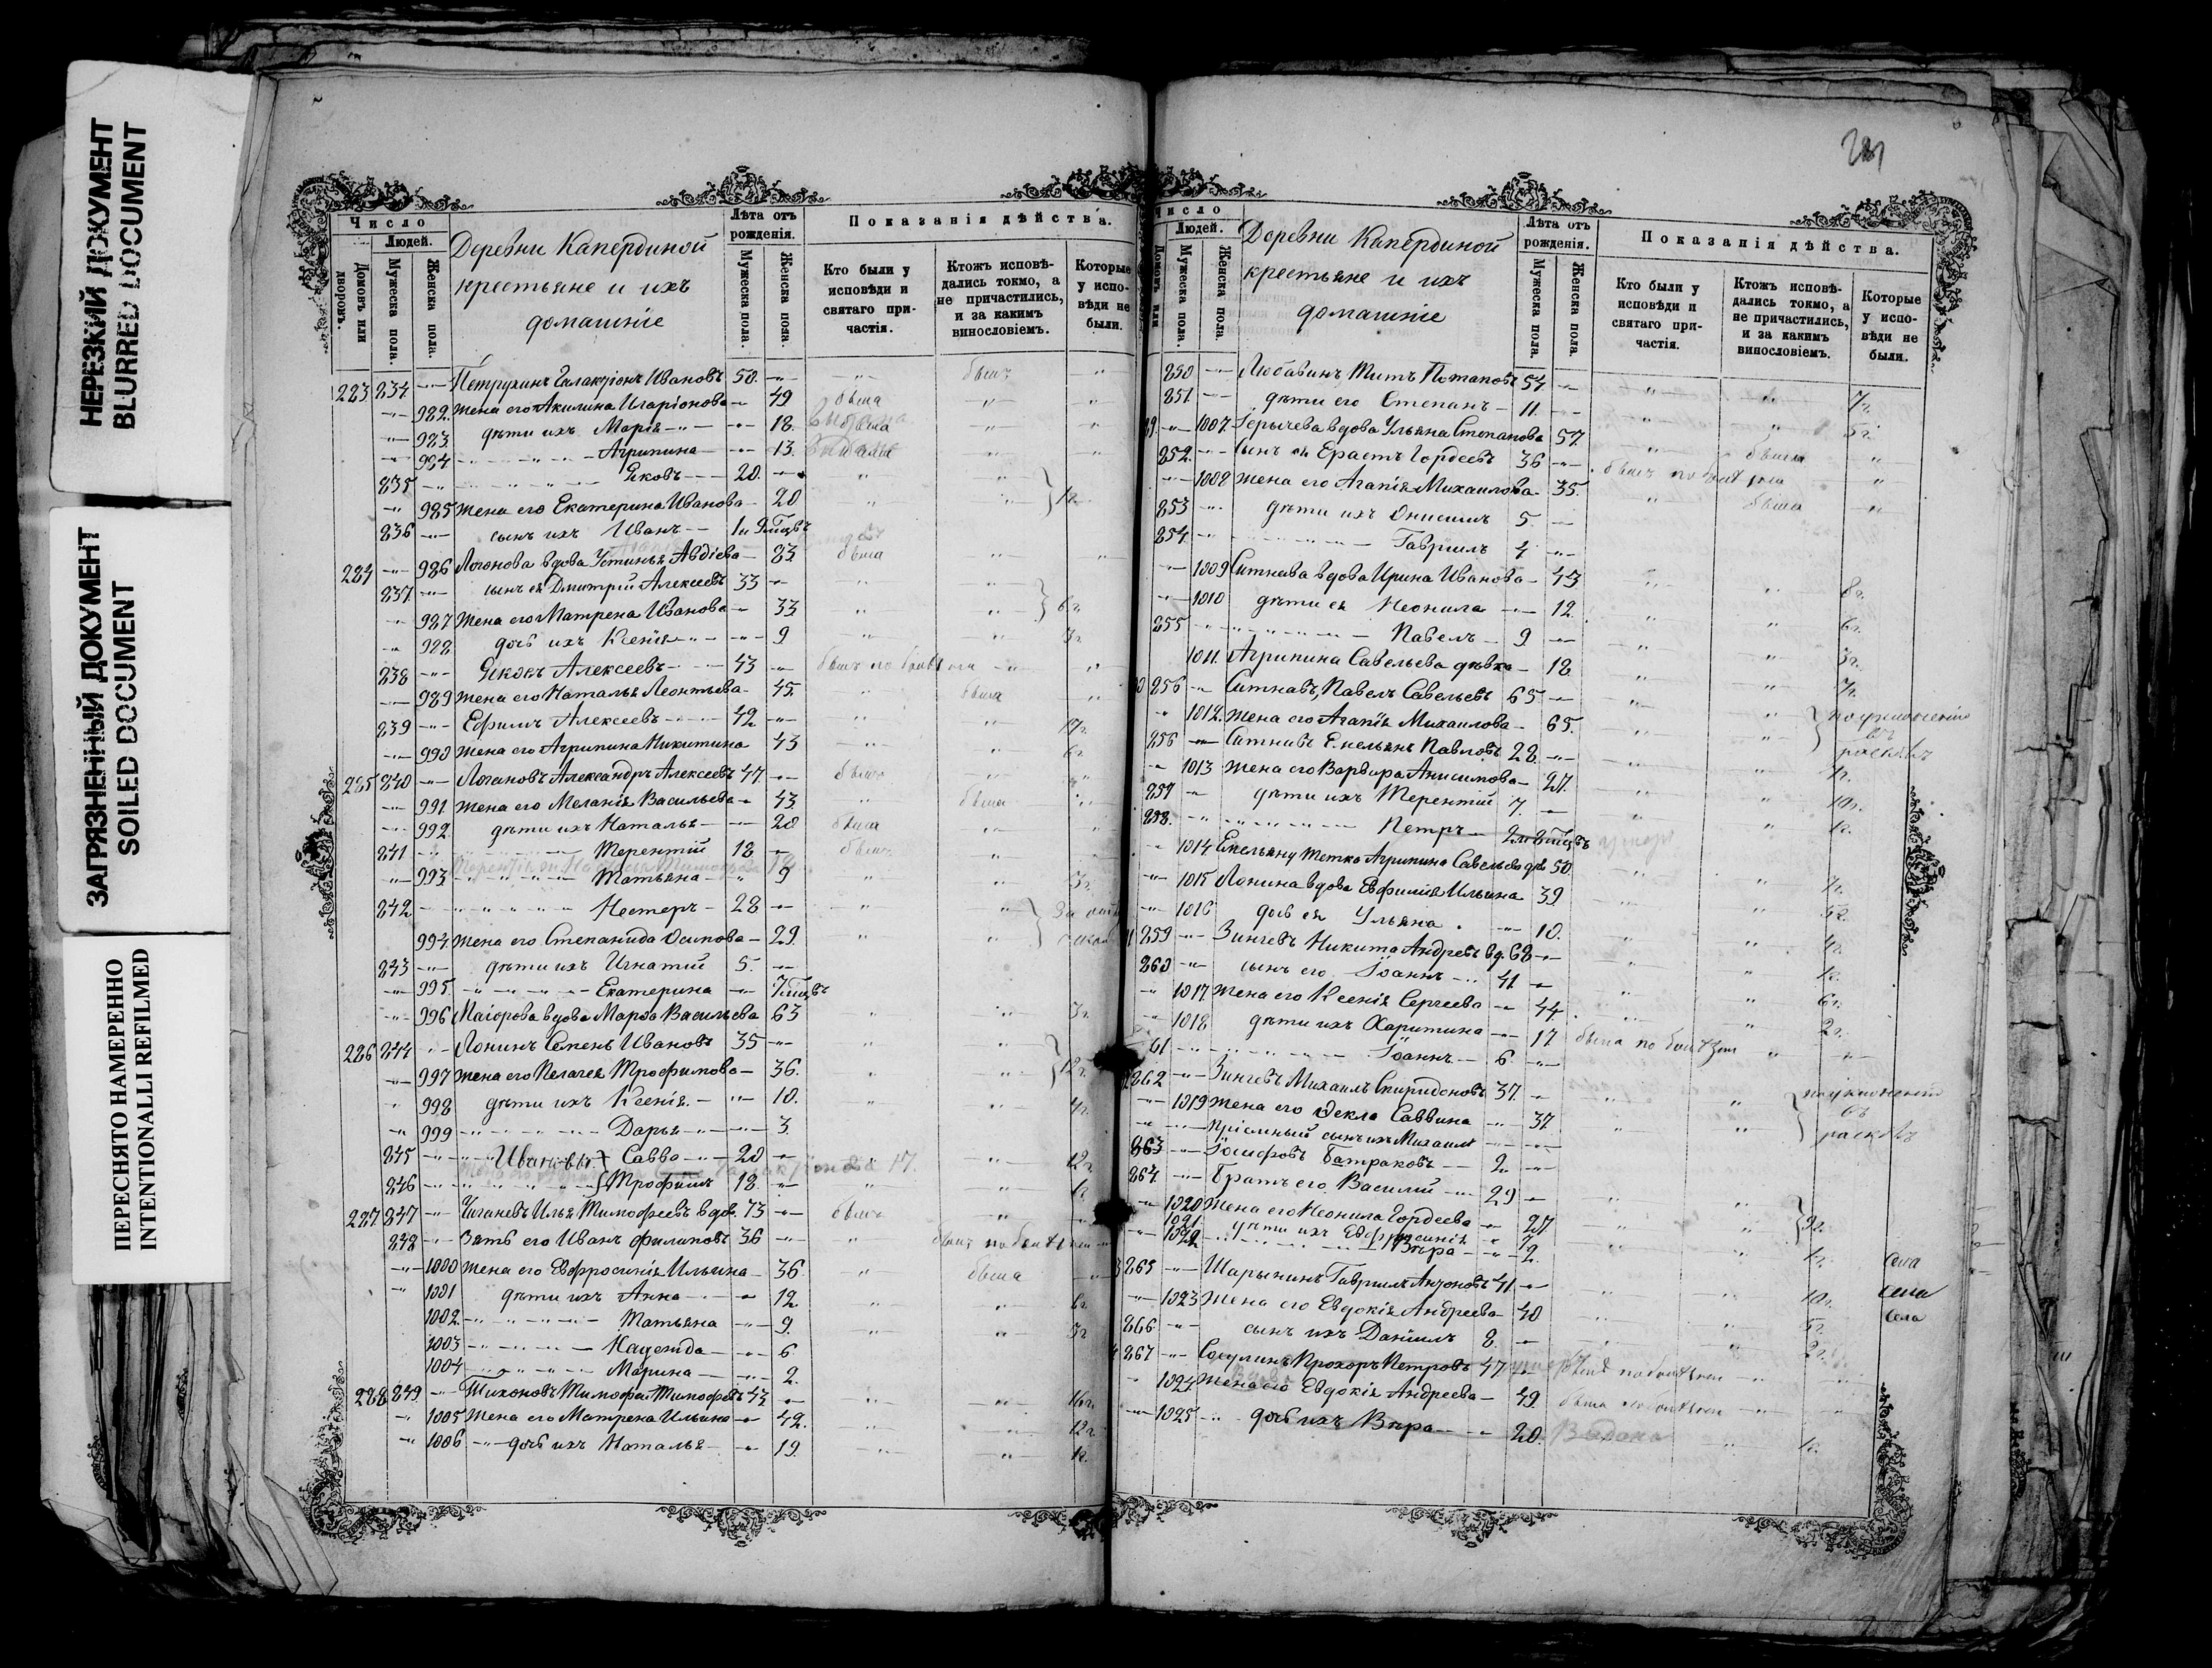 НЕРЕЗКИЙ ДОКУМЕНТ
BLURRED DOCUMENT
ЗАГРЯЗНЕННЫЙ ДОКУМЕНТ
SOILED DOCUMENT
ПЕРЕСНЯТО НАМЕРЕННО
INTENTIONALLI REFILMED
Число
Людей.
Домовъ или дворовъ.
Мужеска пола.
Женска пола.
Деревни Капердиной
крестьяне и ихъ
домашніе
Лѣта отъ рожденія.
Мужеска пола.
Женска пола.
Показанія дѣйства.
Кто были у исповѣди и святаго причастія.
Ктожъ исповѣдались токмо, а не причастились, и за какимъ винословіемъ.
Которые у исповѣди не были.
223 834 Петрухинъ Галактіонъ Ивановъ 50. былъ
982. Жена его Акилина Иларіонова 49 была
983. дѣти ихъ Марія 18.
984 Агрипина 13.
835 Яковъ 20.
985 Жена его Екатерина Иванова 20 1г.
836 сынъ ихъ Иванъ
224 986 вдова Устинья Авдіева 83. была
837 сынъ ея Дмитрій Алексеевъ 33
987 Жена его Матрена Иванова 33 6г.
988 дочь ихъ Ксенія 9 3г.
838 Яковъ Алексеевъ 43
989 Жена его Наталья Леонтьева 45. была
839 Ефимъ Алексеевъ 42
990 Жена его Агрипина Никитина 43 6г.
225 840 Логановъ Александръ Алексеевъ 47 былъ
991 Жена его Меланія Васильева 43 была
992. дѣти ихъ Наталья 20 была
841 Терентій 18 былъ
993 Татьяна 9 3г.
842 Нестеръ 28
994. Жена его Степанида Осипова 29.
843 дѣти ихъ Игнатій 5.
995. Екатерина
996 Маіорова вдова Марѳа Васильева 63 3г.
226 844 Лонинъ Семенъ Ивановъ 35
997 Жена его Пелагея Трофимова 36. 12г.
998 дѣти ихъ Ксенія 10. 4г.
999 Дарья 3.
845 Ивановы Савва 20 12г.
846 Трофимъ 18. 1г.
227 847 Илья Тимофеевъ вдов. 73 былъ
848 Зять его Иванъ Филиповъ 36
1000 Жена его Евфросинія Ильина 36 была
1001 дѣти ихъ Анна 12. 6г.
1002 Татьяна 9. 3г.
1003 Надежда 6
1004 Марина 2.
228 849 Тихоновъ Тимофей Тимофеевъ 47 16г.
1005 Жена его Матрена Ильина 42. 12г.
1006 дочь ихъ Наталья 19. 1г.
Число
Людей.
Домовъ или
Мужеска пола.
Женска пола.
Деревни Капердиной
крестьяне и ихъ
домашніе
Лѣта отъ рожденія.
Мужеска пола.
Женска пола.
Показанія дѣйства.
Кто были у исповѣди и святаго причастія.
Ктожъ исповѣдались токмо, а не причастились, и за какимъ винословіемъ.
Которые у исповѣди не были.
850 Любавинъ Титъ Потаповъ 54 7г.
851 дѣти его Степанъ 11. 5г.
1007. вдова Ульяна Степанова 57. была
852. сынъ ея Ерастъ Гордеевъ 36
1008 Жена его Агапія Михаилова 35. была
853 дѣти ихъ Онисимъ 5.
854 Гавріилъ 4
1009 вдова Ирина Иванова 43 8г.
1010 дѣти ея Неонила 12. 6г.
855 Павелъ 9 3г.
1011. Агрипина Савельева дѣвка 18 7г.
856 Ситнавъ Павелъ Савельевъ 65 по уклоненію
1012. Жена его Агапія Михаилова 65. въ расколъ
856 Ситнавъ Емельянъ Павловъ 28
1013 Жена его Варвара Анисимова 27. 10г.
857 дѣти ихъ Терентій 7. 1г.
858. Петръ
1014 Емельяну тетка Агрипина Савельева дѣв 50 7г.
1015 Лонина вдова Евфимія Ильина 39 5г.
1016 дочь ея Ульяна 10. 4г.
859 Зингевъ Никита Андреевъ вд. 68
860 сынъ его Іоаннъ 41 6г.
1017 Жена его Ксенія Сергеева 44 2г.
1018 дѣти ихъ Харитина 17
61 Іоаннъ 6
862 Зингевъ Михаилъ Спиридоновъ 37. по уклоненію
1019 Жена его Ѳекла Саввина 37 въ расколъ
пріемный сынъ ихъ Михаилъ
863 Іосифовъ Батраковъ 2
864. Братъ его Василій 29
1020 Жена его Неонила Гордеева 27 9г.
1021 дѣти ихъ Евфросинія 7
1022 Вѣра 2. 1г. села
865 Шарынинъ Гавріилъ Антоновъ 41 10г. села
1023 Жена его Евдокія Андреева 40 5г. села
866 сынъ ихъ Даніилъ 8. 2г.
867 Прохоръ Петровъ 47
1024 Жена его Евдокія Андреева 49.
1025 дочь ихъ Вѣра 20. 1г.